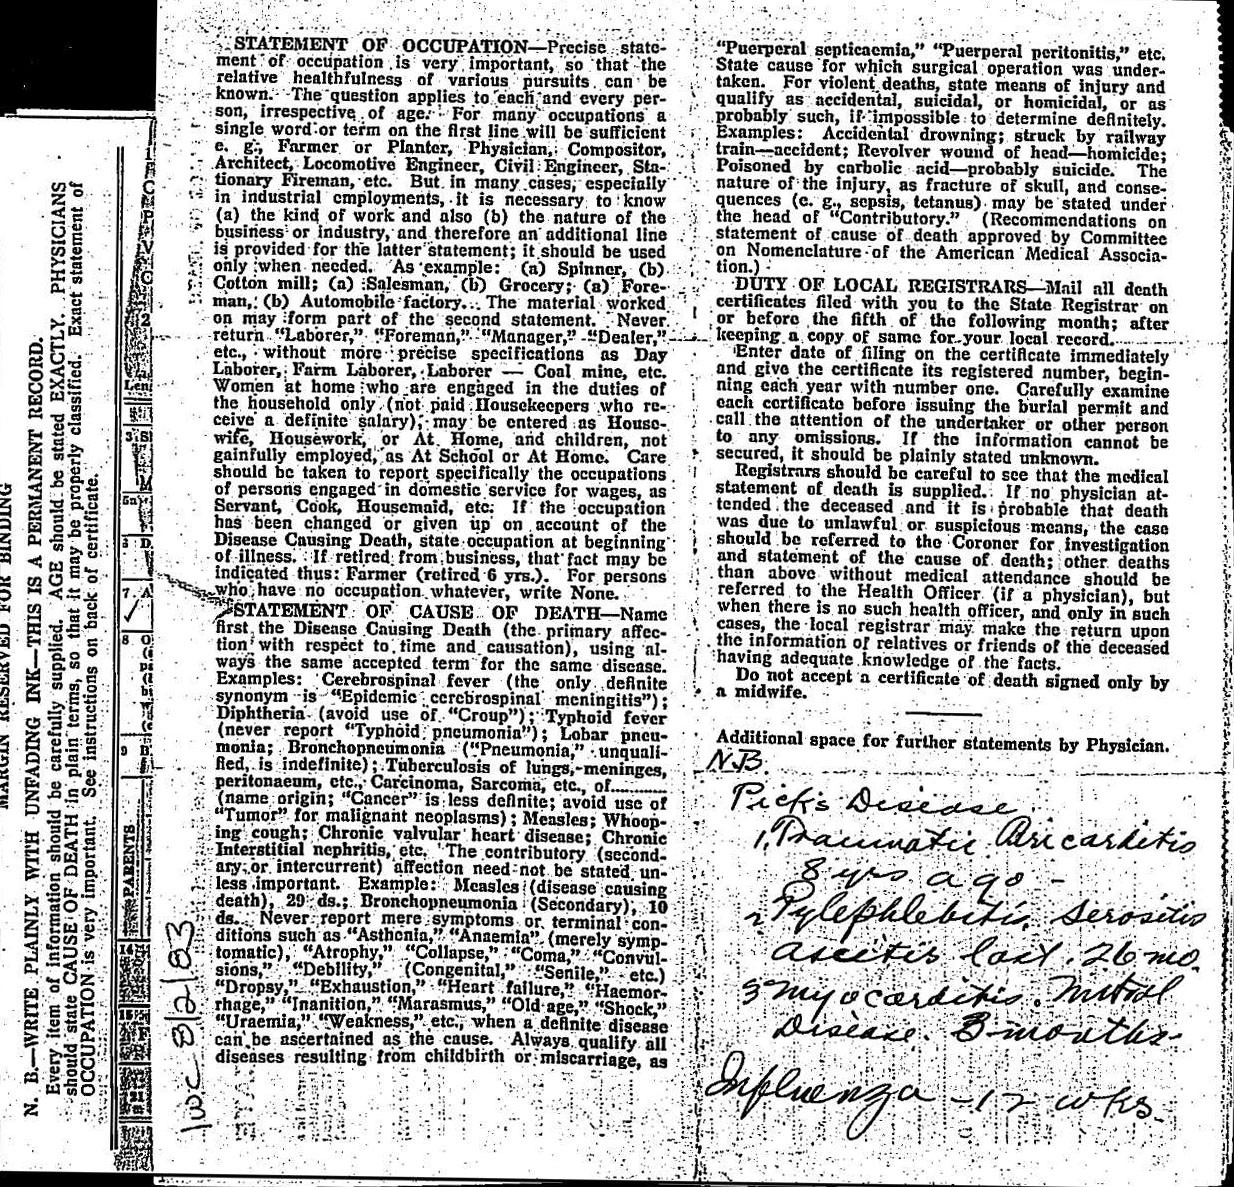 STATEMENT OF OCCUPATION—Precise state-
ment of occupation is very important, so that the
relative healthfulness of various pursuits can be
known. The question applies to each and every per-
son, irrespective of age. For many occupations a
single word or term on the first line will be sufficient
e. g., Farmer or Planter, Physician, Compositor,
Architect, Locomotive Engineer, Civil Engineer, Sta-
tionary Fireman, etc. But in many cases, especially
in industrial employments, it is necessary to know
(a) the kind of work and also (b) the nature of the
business or industry, and therefore an additional line
is provided for the latter statement; it should be used
only when needed. As example: (a) Spinner, (b)
Cotton mill; (a) Salesman, (b) Grocery; (a) Fore-
man, (b) Automobile factory. The material worked
on may form part of the second statement. Never
return "Laborer," "Foreman," "Manager," "Dealer,"
etc., without more precise specifications as Day
Laborer, Farm Laborer, Laborer — Coal mine, etc.
Women at home who are engaged in the duties of
the household only (not paid Housekeepers who re-
ceive a definite salary), may be entered as House-
wife, Housework, or At Home, and children, not
gainfully employed, as At School or At Home. Care
should be taken to report specifically the occupations
of persons engaged in domestic service for wages, as
Servant, Cook, Housemaid, etc. If the occupation
has been changed or given up on account of the
Disease Causing Death, state occupation at beginning
of illness. If retired from business, that fact may be
indicated thus: Farmer (retired 6 yrs.). For persons
who have no occupation whatever, write None.
STATEMENT OF CAUSE OF DEATH—Name
first the Disease Causing Death (the primary affec-
tion with respect to time and causation), using al-
ways the same accepted term for the same disease.
Examples: Cerebrospinal fever (the only definite
synonym is "Epidemic cerebrospinal meningitis");
Diphtheria (avoid use of "Croup"); Typhoid fever
(never report "Typhoid pneumonia"); Lobar pneu-
monia; Bronchopneumonia ("Pneumonia," unquali-
fied, is indefinite); Tuberculosis of lungs, meninges,
peritonaeum, etc., Carcinoma, Sarcoma, etc., of..........
(name origin; "Cancer" is less definite; avoid use of
"Tumor" for malignant neoplasms); Measles; Whoop-
ing cough; Chronic valvular heart disease; Chronic
Interstitial nephritis, etc. The contributory (second-
ary or intercurrent) affection need not be stated un-
less important. Example: Measles (disease causing
death), 29 ds.; Bronchopneumonia (Secondary), 10
ds. Never report mere symptoms or terminal con-
ditions such as "Asthenia," "Anaemia" (merely symp-
tomatic), "Atrophy," "Collapse," "Coma," "Convul-
sions," "Debility," (Congenital," "Senile," etc.)
"Dropsy," "Exhaustion," "Heart failure," "Haemor-
rhage," "Inanition," "Marasmus," "Old age," "Shock,"
"Uraemia," "Weakness," etc., when a definite disease
can be ascertained as the cause. Always qualify all
diseases resulting from childbirth or miscarriage, as
"Puerperal septicaemia," "Puerperal peritonitis," etc.
State cause for which surgical operation was under-
taken. For violent deaths, state means of injury and
qualify as accidental, suicidal, or homicidal, or as
probably such, if impossible to determine definitely.
Examples: Accidental drowning; struck by railway
train—accident; Revolver wound of head—homicide;
Poisoned by carbolic acid—probably suicide. The
nature of the injury, as fracture of skull, and conse-
quences (e. g., sepsis, tetanus) may be stated under
the head of "Contributory." (Recommendations on
statement of cause of death approved by Committee
on Nomenclature of the American Medical Associa-
tion.)
DUTY OF LOCAL REGISTRARS—Mail all death
certificates filed with you to the State Registrar on
or before the fifth of the following month; after
keeping a copy of same for your local record.
Enter date of filing on the certificate immediately
and give the certificate its registered number, begin-
ning each year with number one. Carefully examine
each certificate before issuing the burial permit and
call the attention of the undertaker or other person
to any omissions. If the information cannot be
secured, it should be plainly stated unknown.
Registrars should be careful to see that the medical
statement of death is supplied. If no physician at-
tended the deceased and it is probable that death
was due to unlawful or suspicious means, the case
should be referred to the Coroner for investigation
and statement of the cause of death; other deaths
than above without medical attendance should be
referred to the Health Officer (if a physician), but
when there is no such health officer, and only in such
cases, the local registrar may make the return upon
the information of relatives or friends of the deceased
having adequate knowledge of the facts.
Do not accept a certificate of death signed only by
a midwife.
Additional space for further statements by Physician.
N.B.
Pick's Disease
1, Traumatic Pericarditis
8 yrs ago -
2 Pylephlebitis, serositis
ascitis last. 26 mo.
3 myocarditis. Mitral
Disease. 3 months-
Influenza - 12 wks.
MARGIN RESERVED FOR BINDING
N. B.—WRITE PLAINLY WITH UNFADING INK—THIS IS A PERMANENT RECORD.
Every item of information should be carefully supplied. AGE should be stated EXACTLY. PHYSICIANS
should state CAUSE OF DEATH in plain terms, so that it may be properly classified. Exact statement of
OCCUPATION is very important. See instructions on back of certificate.
PARENTS
IWC 8/2/83